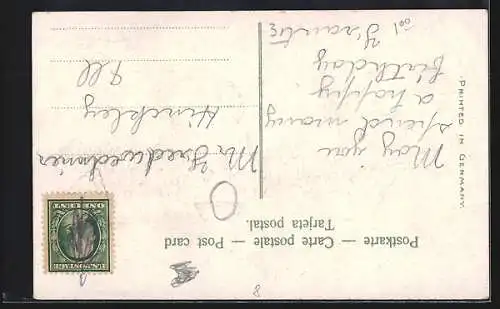 Postkarte — Carte postale — Post card
Tarjeta postal.
May you
spend many
a happy
birthday
Mr
Hinckley
Ill
PRINTED IN GERMANY.
U.S. POSTAGE
ONE CENT
8